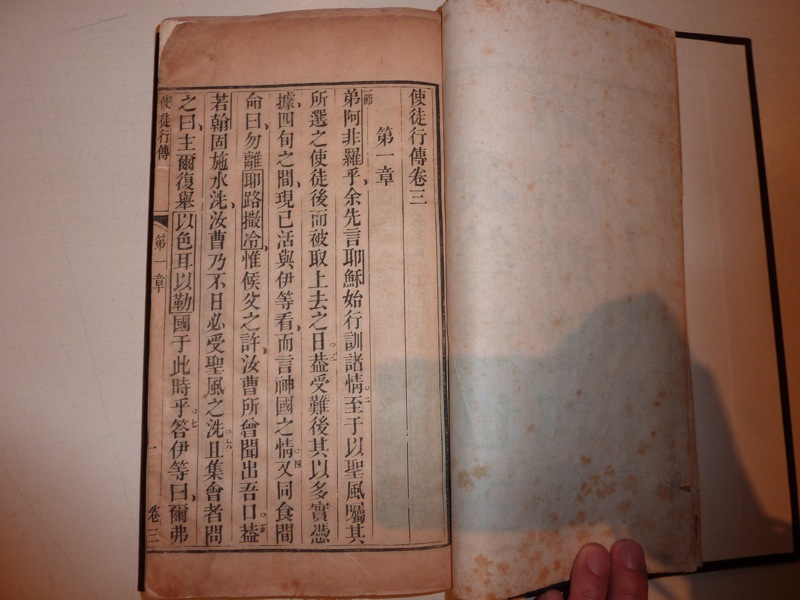 使徒行傳卷三
第一章
一節 弟阿非羅乎余先言耶穌始行訓諸情。二至于以聖風囑其
所選之使徒後而被取上去之日。三葢受難後其以多實憑
據四旬之間現已活與伊等看而言神國之情。四又同食間
命曰勿離耶路撒冷惟候父之許汝曹所曾聞出吾口。五葢
若翰固施水洗汝曹乃不日必受聖風之洗。六且集會者問
之曰主爾復舉以色耳以勒國于此時乎。七答伊等曰爾弗
使徒行傳
第一章
一
卷三